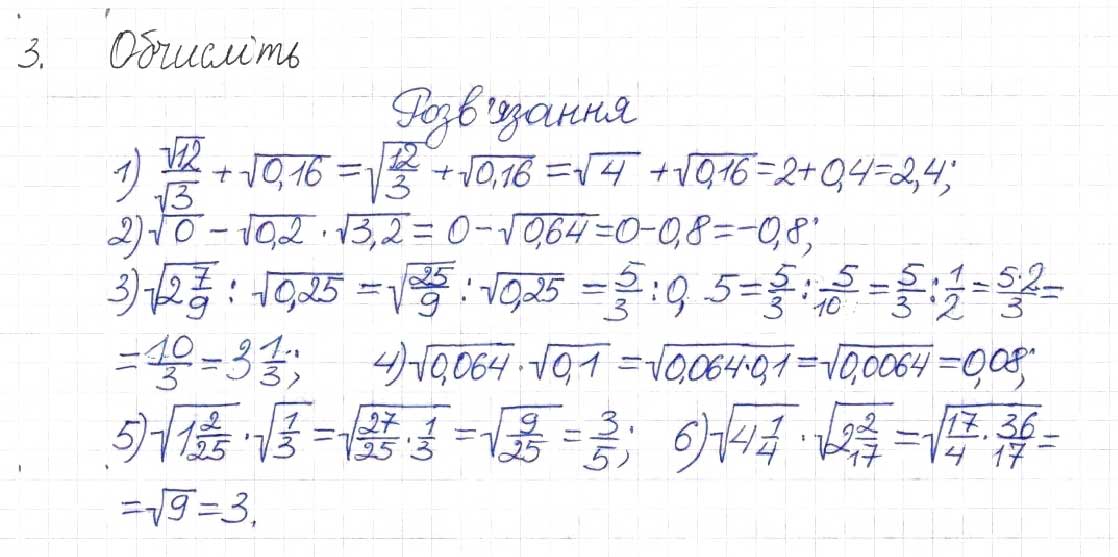 3. Обчисліть
Розв'язання
1) √12/√3 + √0,16 = √(12/3) + √0,16 = √4 + √0,16 = 2 + 0,4 = 2,4;
2) √0 − √0,2 · √3,2 = 0 − √0,64 = 0 − 0,8 = −0,8;
3) √(2 7/9) : √0,25 = √(25/9) : √0,25 = 5/3 : 0,5 = 5/3 : 5/10 = 5/3 : 1/2 = (5·2)/3 =
= 10/3 = 3 1/3; 4) √0,064 · √0,1 = √(0,064·0,1) = √0,0064 = 0,08;
5) √(1 2/25) · √(1/3) = √(27/25 · 1/3) = √(9/25) = 3/5; 6) √(4 1/4) · √(2 2/17) = √(17/4 · 36/17) =
= √9 = 3.